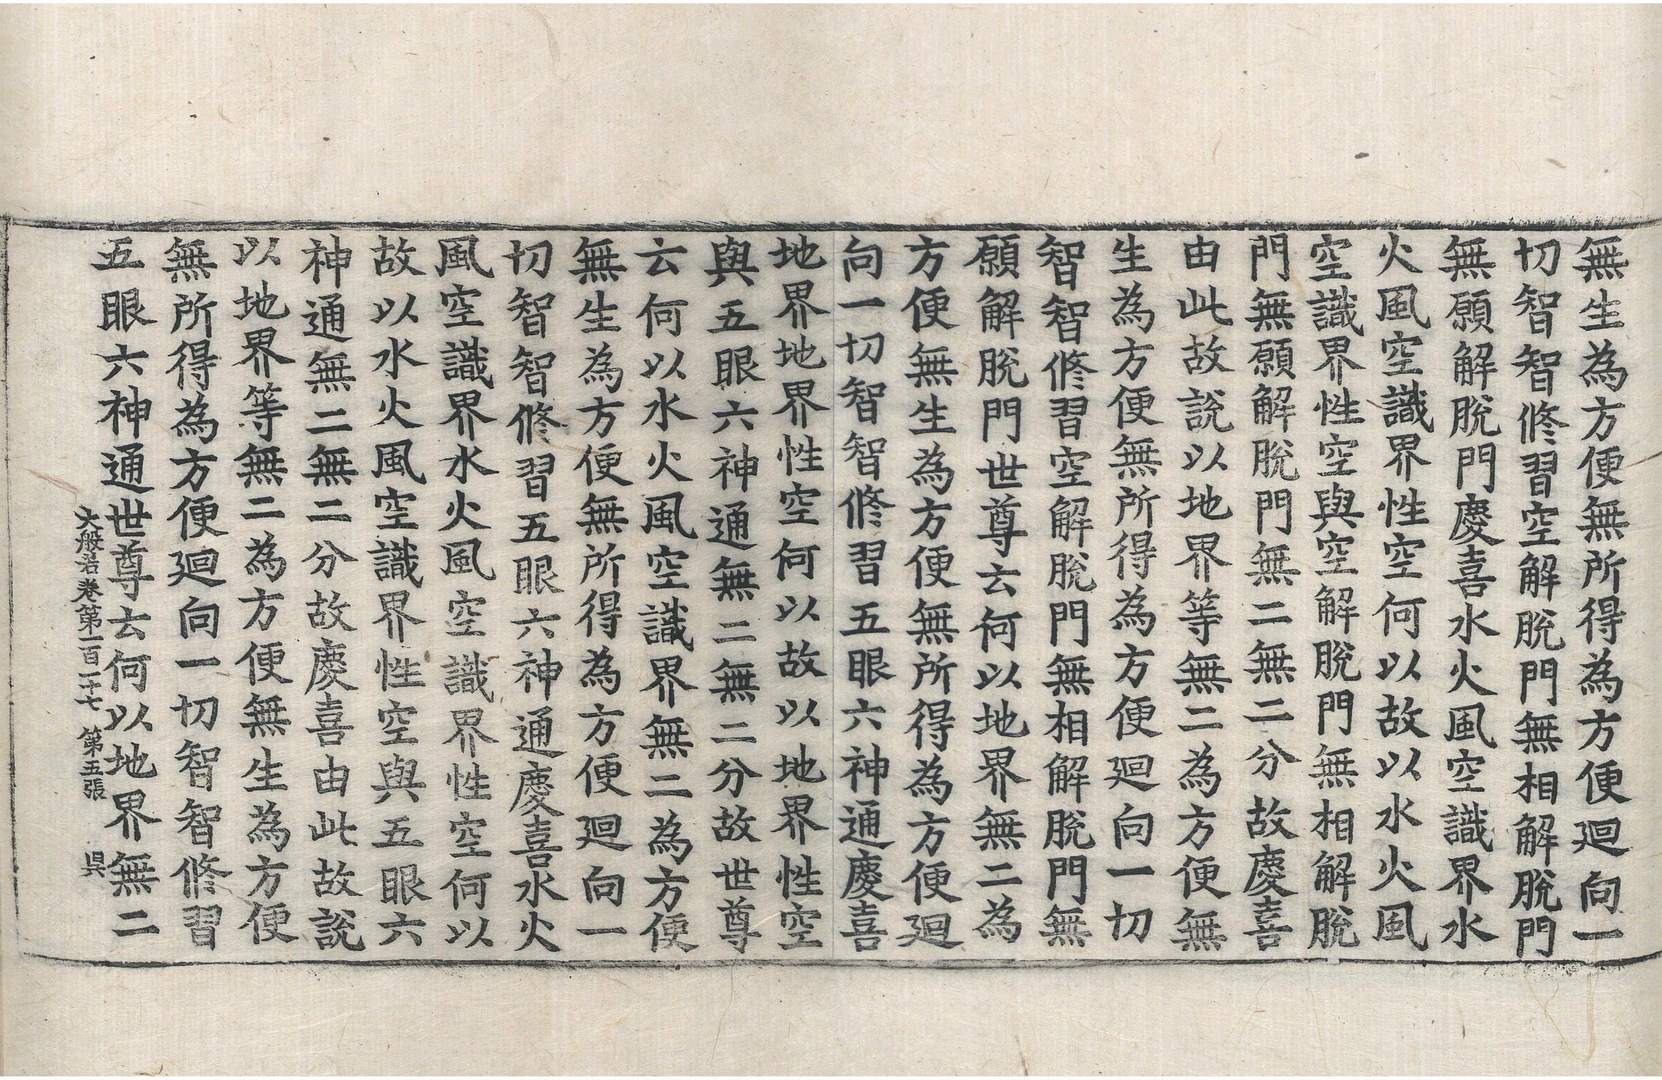 無生為方便無所得為方便廻向一
切智智修習空解脫門無相解脫門
無願解脫門慶喜水火風空識界水
火風空識界性空何以故以水火風
空識界性空與空解脫門無相解脫
門無願解脫門無二無二分故慶喜
由此故說以地界等無二為方便無
生為方便無所得為方便廻向一切
智智修習空解脫門無相解脫門無
願解脫門世尊云何以地界無二為
方便無生為方便無所得為方便廻
向一切智智修習五眼六神通慶喜
地界地界性空何以故以地界性空
與五眼六神通無二無二分故世尊
云何以水火風空識界無二為方便
無生為方便無所得為方便廻向一
切智智修習五眼六神通慶喜水火
風空識界水火風空識界性空何以
故以水火風空識界性空與五眼六
神通無二無二分故慶喜由此故說
以地界等無二為方便無生為方便
無所得為方便廻向一切智智修習
五眼六神通世尊云何以地界無二
大般若卷第一百一十七 第五張 吳